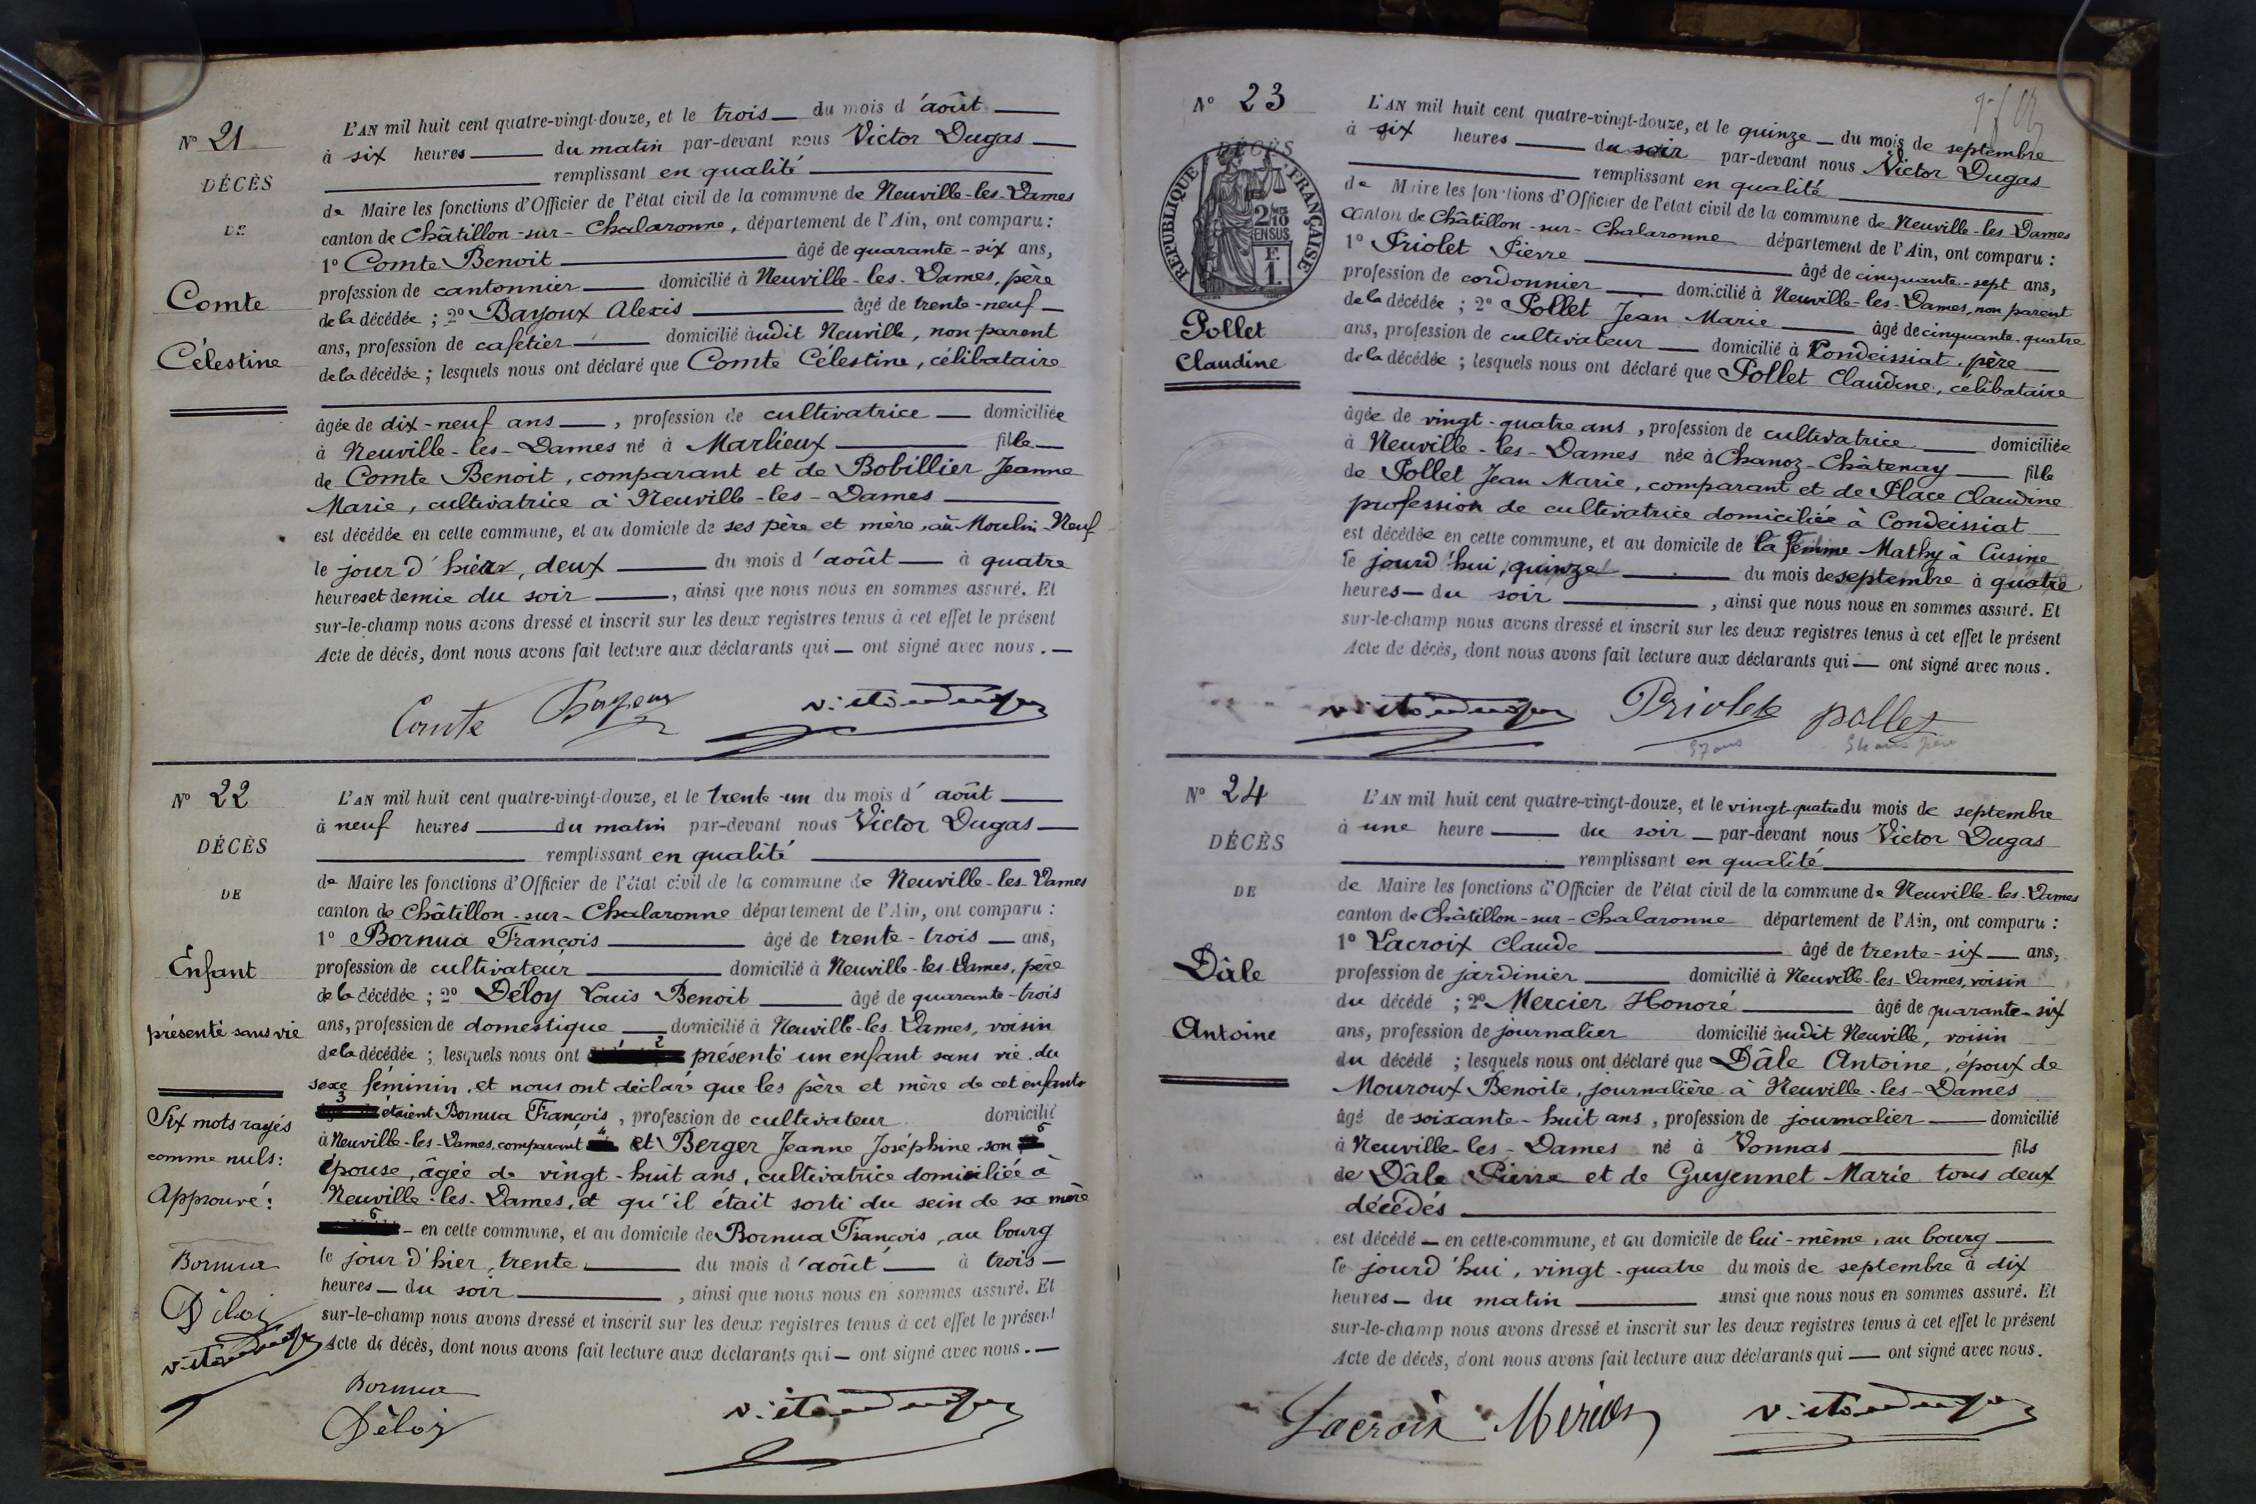 N° 21
DÉCÈS
DE
Comte
Célestine
L'AN mil huit cent quatre-vingt-douze, et le trois du mois d'août
à six heures du matin par-devant nous Victor Dugas
remplissant en qualité
de Maire les fonctions d'Officier de l'état civil de la commune de Neuville-les-Dames
canton de Châtillon-sur-Chalaronne, département de l'Ain, ont comparu :
1° Comte Benoit âgé de quarante-six ans,
profession de cantonnier domicilié à Neuville-les-Dames, père
de la décédée ; 2° Bayoux Alexis âgé de trente-neuf
ans, profession de cafetier domicilié audit Neuville, non parent
de la décédée ; lesquels nous ont déclaré que Comte Célestine, célibataire
âgée de dix-neuf ans, profession de cultivatrice domiciliée
à Neuville-les-Dames né à Marlieux fille
de Comte Benoit, comparant et de Bobillier Jeanne
Marie, cultivatrice à Neuville-les-Dames
est décédée en cette commune, et au domicile de ses père et mère, au Moulin-Neuf
le jour d'hier, deux du mois d'août à quatre
heures et demie du soir, ainsi que nous nous en sommes assuré. Et
sur-le-champ nous avons dressé et inscrit sur les deux registres tenus à cet effet le présent
Acte de décès, dont nous avons fait lecture aux déclarants qui — ont signé avec nous. —
Comte Bayoux victor dugas
N° 22
DÉCÈS
DE
Enfant
présenté sans vie
Six mots rayés
comme nuls :
Approuvé :
Bornua
Déloy
victor dugas
L'AN mil huit cent quatre-vingt-douze, et le trente-un du mois d'août
à neuf heures du matin par-devant nous Victor Dugas
remplissant en qualité
de Maire les fonctions d'Officier de l'état civil de la commune de Neuville-les-Dames
canton de Châtillon-sur-Chalaronne département de l'Ain, ont comparu :
1° Bornua François âgé de trente-trois ans,
profession de cultivateur domicilié à Neuville-les-Dames, père
de la décédée ; 2° Déloy Louis Benoit âgé de quarante-trois
ans, profession de domestique domicilié à Neuville-les-Dames, voisin
de la décédée ; lesquels nous ont présenté un enfant sans vie du
sexe féminin, et nous ont déclaré que les père et mère de cet enfant
étaient Bornua François, profession de cultivateur domicilié
à Neuville-les-Dames, comparant et Berger Jeanne Joséphine son
épouse, âgée de vingt-huit ans, cultivatrice domiciliée à
Neuville-les-Dames, et qu'il était sorti du sein de sa mère
en cette commune, et au domicile de Bornua François, au bourg
le jour d'hier, trente du mois d'août à trois
heures du soir, ainsi que nous nous en sommes assuré. Et
sur-le-champ nous avons dressé et inscrit sur les deux registres tenus à cet effet le présent
Acte de décès, dont nous avons fait lecture aux déclarants qui — ont signé avec nous. —
Bornua
Déloy
victor dugas
N° 23
DÉCÈS
RÉPUBLIQUE FRANÇAISE
2/10
EN SUS
F.
1.
Pollet
Claudine
L'AN mil huit cent quatre-vingt-douze, et le quinze du mois de septembre
à six heures du soir par-devant nous Victor Dugas
remplissant en qualité
de Maire les fonctions d'Officier de l'état civil de la commune de Neuville-les-Dames
canton de Châtillon-sur-Chalaronne département de l'Ain, ont comparu :
1° Priolet Pierre âgé de cinquante-sept ans,
profession de cordonnier domicilié à Neuville-les-Dames, non parent
de la décédée ; 2° Pollet Jean Marie âgé de cinquante-quatre
ans, profession de cultivateur domicilié à Condeissiat, père
de la décédée ; lesquels nous ont déclaré que Pollet Claudine, célibataire
âgée de vingt-quatre ans, profession de cultivatrice domiciliée
à Neuville-les-Dames née à Chanoz-Châtenay fille
de Pollet Jean Marie, comparant et de Place Claudine
profession de cultivatrice domiciliée à Condeissiat
est décédée en cette commune, et au domicile de la femme Mathy à Cusine
le jourd'hui, quinze du mois de septembre à quatre
heures du soir, ainsi que nous nous en sommes assuré. Et
sur-le-champ nous avons dressé et inscrit sur les deux registres tenus à cet effet le présent
Acte de décès, dont nous avons fait lecture aux déclarants qui — ont signé avec nous.
victor dugas Priolet pollet
57 ans 54 ans père
N° 24
DÉCÈS
DE
Dâle
Antoine
L'AN mil huit cent quatre-vingt-douze, et le vingt-quatre du mois de septembre
à une heure du soir par-devant nous Victor Dugas
remplissant en qualité
de Maire les fonctions d'Officier de l'état civil de la commune de Neuville-les-Dames
canton de Châtillon-sur-Chalaronne département de l'Ain, ont comparu :
1° Lacroix Claude âgé de trente-six ans,
profession de jardinier domicilié à Neuville-les-Dames, voisin
du décédé ; 2° Mercier Honoré âgé de quarante-six
ans, profession de journalier domicilié audit Neuville, voisin
du décédé ; lesquels nous ont déclaré que Dâle Antoine, époux de
Mouroux Benoite, journalière à Neuville-les-Dames
âgé de soixante-huit ans, profession de journalier domicilié
à Neuville-les-Dames né à Vonnas fils
de Dâle Pierre et de Guyennet Marie tous deux
décédés
est décédé en cette commune, et au domicile de lui-même, au bourg
le jourd'hui, vingt-quatre du mois de septembre à dix
heures du matin ainsi que nous nous en sommes assuré. Et
sur-le-champ nous avons dressé et inscrit sur les deux registres tenus à cet effet le présent
Acte de décès, dont nous avons fait lecture aux déclarants qui — ont signé avec nous.
Lacroix Mercier victor dugas